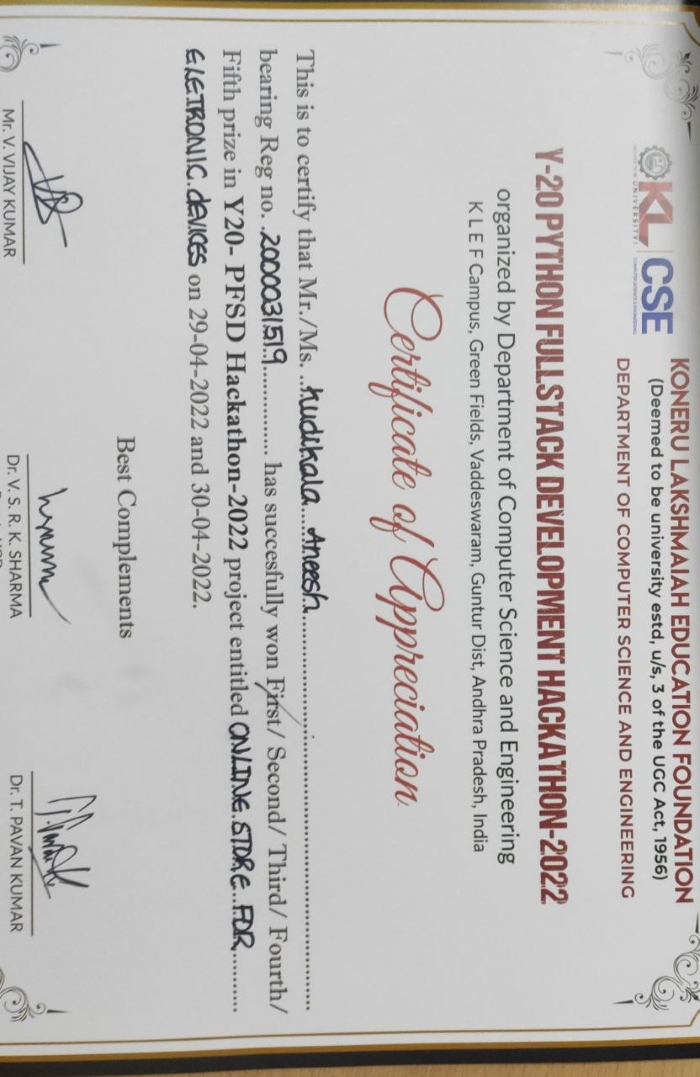 KL CSE
UNIVERSITY
COMPUTER SCIENCE & ENGINEERING
KONERU LAKSHMAIAH EDUCATION FOUNDATION
(Deemed to be university estd, u/s, 3 of the UGC Act, 1956)
DEPARTMENT OF COMPUTER SCIENCE AND ENGINEERING
Y-20 PYTHON FULLSTACK DEVELOPMENT HACKATHON-2022
organized by Department of Computer Science and Engineering
K L E F Campus, Green Fields, Vaddeswaram, Guntur Dist, Andhra Pradesh, India
Certificate of Appreciation
This is to certify that Mr./Ms. Kudikala Aneesh
bearing Reg no. 2000031519 has succesfully won First/ Second/ Third/ Fourth/
Fifth prize in Y20- PFSD Hackathon-2022 project entitled ONLINE STORE FOR
ELETRONIC DEVICES on 29-04-2022 and 30-04-2022.
Best Complements
Mr. V. VIJAY KUMAR Dr. V. S. R. K. SHARMA Dr. T. PAVAN KUMAR